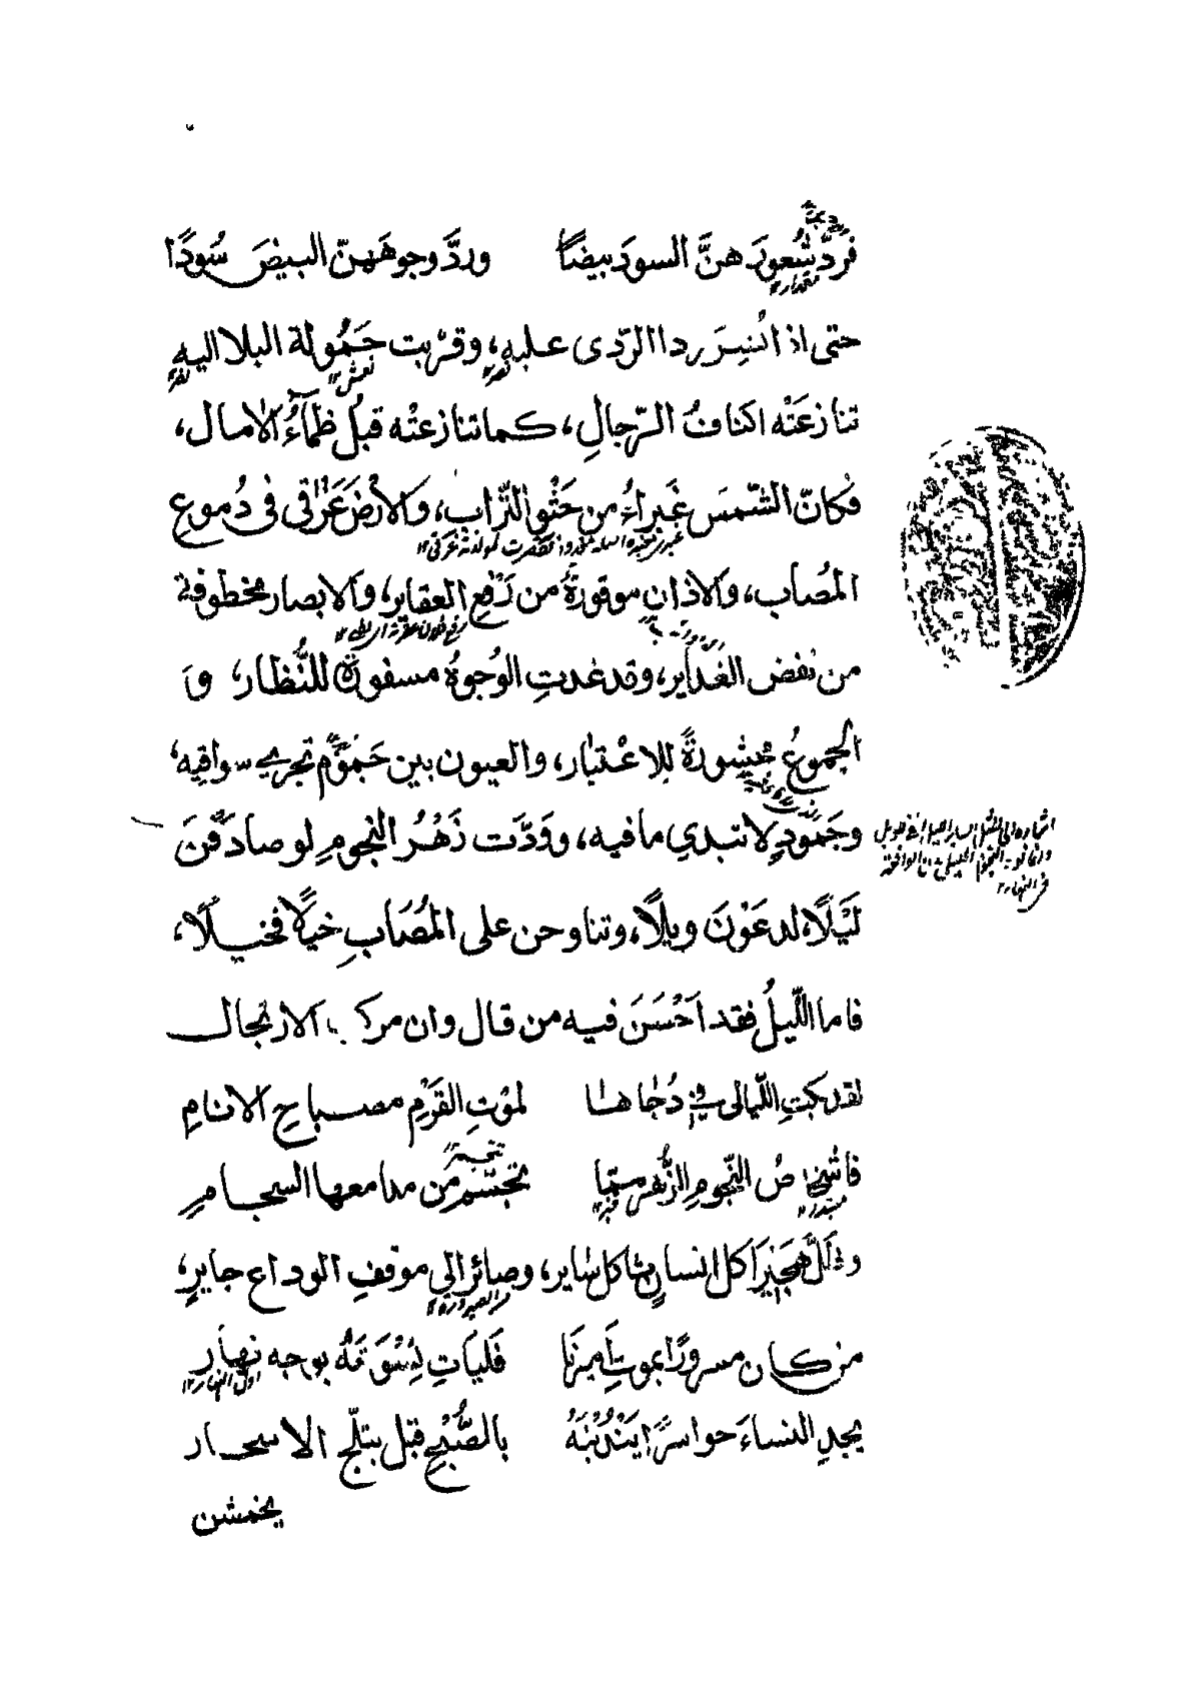 فَرَدَّ شُعورَ هنَّ السودَ بيضًا وردَّ وجوهَهنّ البيضَ سُودًا
حتى اذا انسرَ ردا الرّدى عليه، وقرّبت حَمُولة البلا اليه
تنازعَتْه اكنافُ الرّجالِ، كما تنازعتْه قبلُ ظمآءُ الامال،
فكانّ الشمسَ غَبراءُ من حَثْوِ التّرابِ، وَالارْضَ غَرْقى فى دُموعِ
المُصاب، والاذان موقورةٌ من رَفْعِ العقاير، والابصار مخطوفة
من نفض الغَدَاير، وقد غدتِ الوُجوهُ مسفورةً للنُّظار، وَ
الجموعُ محشورةً للاعْتبار، والعيون بين جَمُومٍ تجرى سواقيه،
وجَمُودٍ لا تبدي ما فيه، ووَدَّت زَهْرُ النجومِ لو صادَفْنَ
لَيْلًا، لدعَوْنَ ويلًا، وتناوحن على المُصَابِ خيْلًا فخيلًا،
فاما اللّيلُ فقد احْسَنَ فيه من قال وان مركب الارتجال
لقد بكتِ اللّيالى في دُجاها لموْتِ القَرْمِ مصباحِ الانامِ
فاشخاصُ النّجومِ الزُّهر ممّا تجسّم من مدامعها السجامِ
كل انسان شاكل ساير، وصائر الي موقفِ الوداع جايرٍ،
من كان مسرورًا بموتِ اميرنا فَليَاتِ نِسْوَتَهُ بوجه نهارِ
يجدِ النساءَ حواسرًا يَنْدُبْنَهُ بالصُّبْحِ قبل تبلّج الاسحار
يخمشن